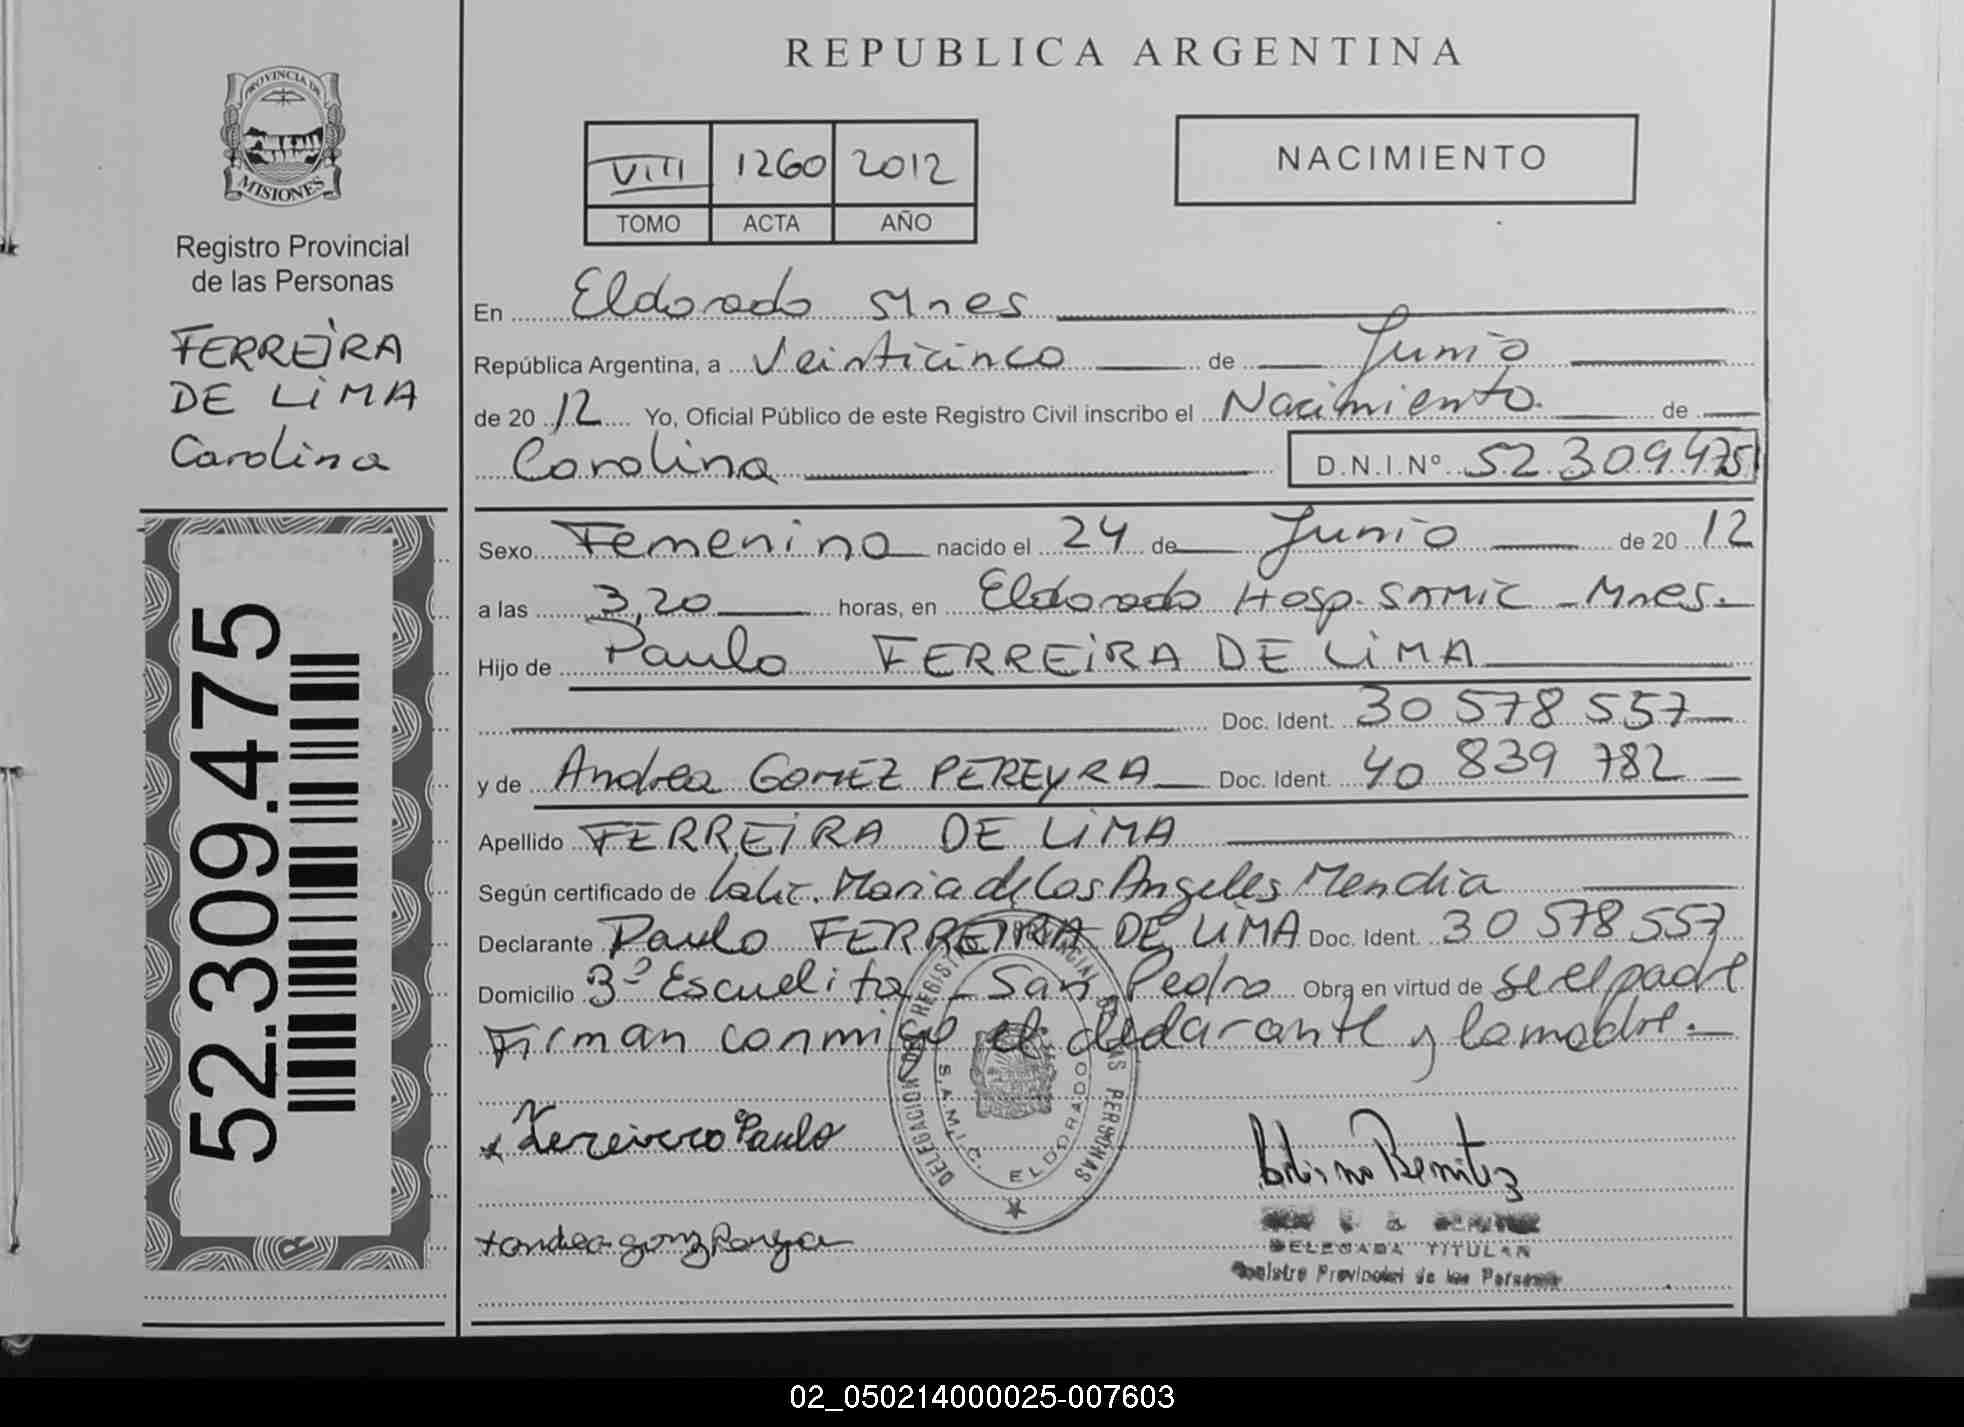 REPUBLICA ARGENTINA
PROVINCIA DE
MISIONES
Registro Provincial
de las Personas
FERREIRA
DE LIMA
Carolina
52.309.475
VIII 1260 2012
TOMO ACTA AÑO
NACIMIENTO
En Eldorado Mnes
República Argentina, a Veinticinco de Junio
de 20 12 Yo, Oficial Público de este Registro Civil inscribo el Nacimiento de
Carolina D.N.I.Nº 52.309.475
Sexo Femenino nacido el 24 de Junio de 20 12
a las 3,20 horas, en Eldorado Hosp. SAMIC - Mnes.
Hijo de Paulo FERREIRA DE LIMA
Doc. Ident. 30 578 557
y de Andrea GOMEZ PEREYRA Doc. Ident. 40 839 782
Apellido FERREIRA DE LIMA
Según certificado de Maria de Los Angeles Mendia
Declarante Paulo FERREIRA DE LIMA Doc. Ident. 30 578 557
Domicilio 3º Escuelita - San Pedro Obra en virtud de se el padre
Firman conmigo el declarante y la madre.
DELEGACION REGISTRO PROVINCIAL DE LAS PERSONAS
S.A.M.I.C. ELDORADO
Paulo
Benitez
DELEGADA TITULAR
Registro Provincial de las Personas
02_050214000025-007603